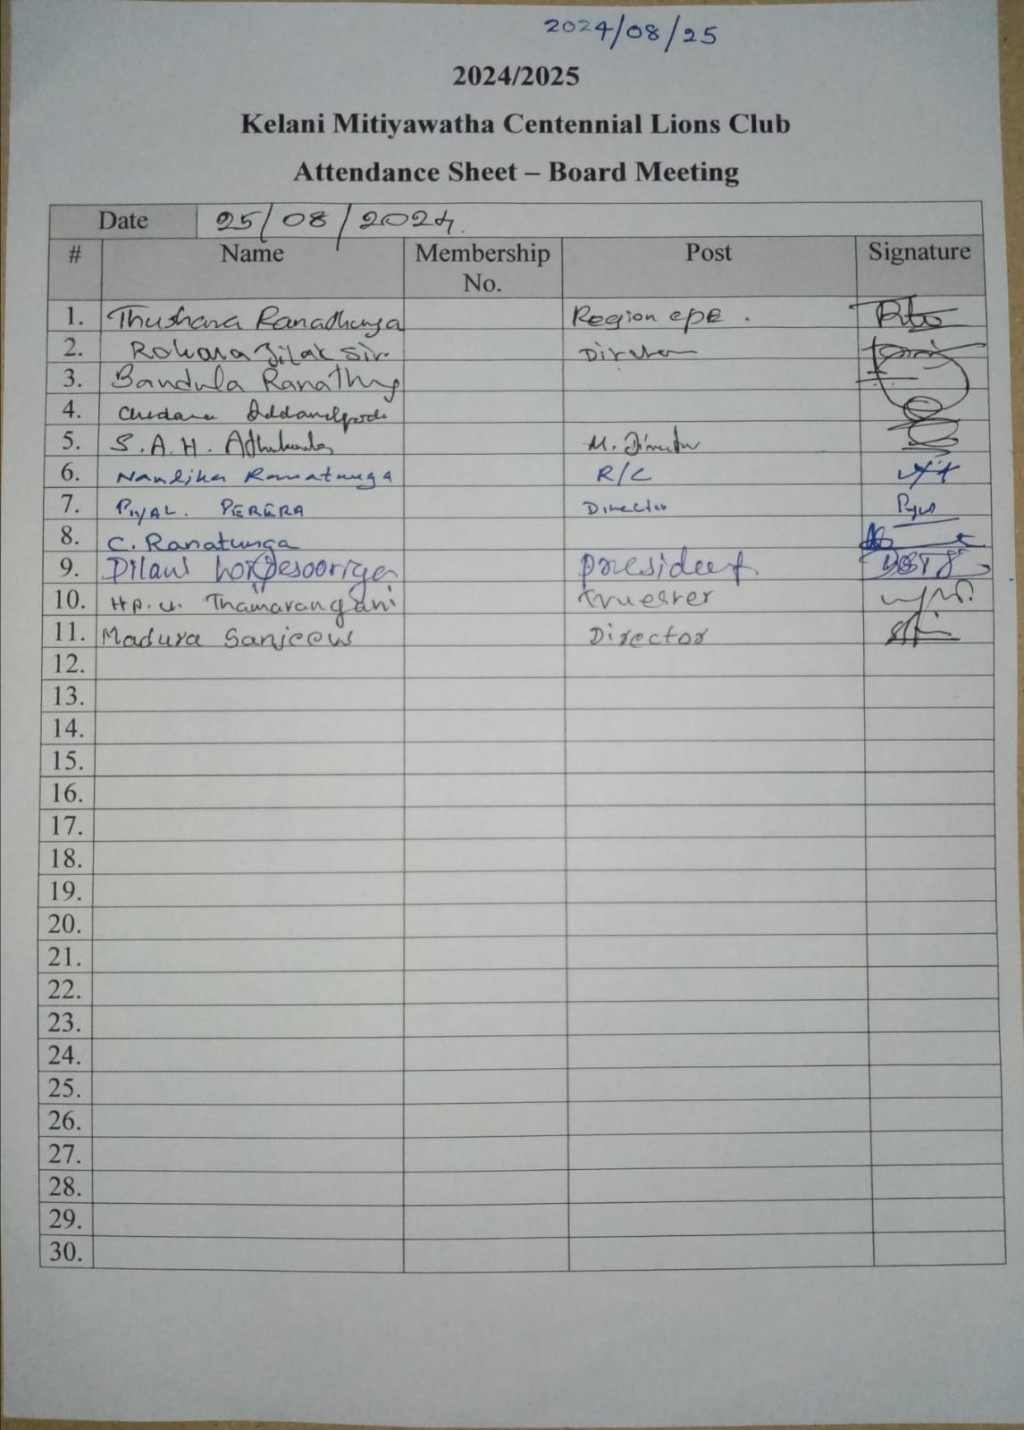 2024/08/25
2024/2025
Kelani Mitiyawatha Centennial Lions Club
Attendance Sheet – Board Meeting
Date 25/08/2024.
# Name Membership No. Post Signature
1. Thushara Ranadhunga Region cpe .
2. Rohana Tilak Sir.
3. Bandula
4.
5. S.A.H. M. Director
6. Nandika Ranatunga R/C
7. PIYAL. PERERA Director
8. C. Ranatunga
9. president.
10. HP.U. Thamarangani truesrer
11. Madura Sanjeew Director
12.
13.
14.
15.
16.
17.
18.
19.
20.
21.
22.
23.
24.
25.
26.
27.
28.
29.
30.